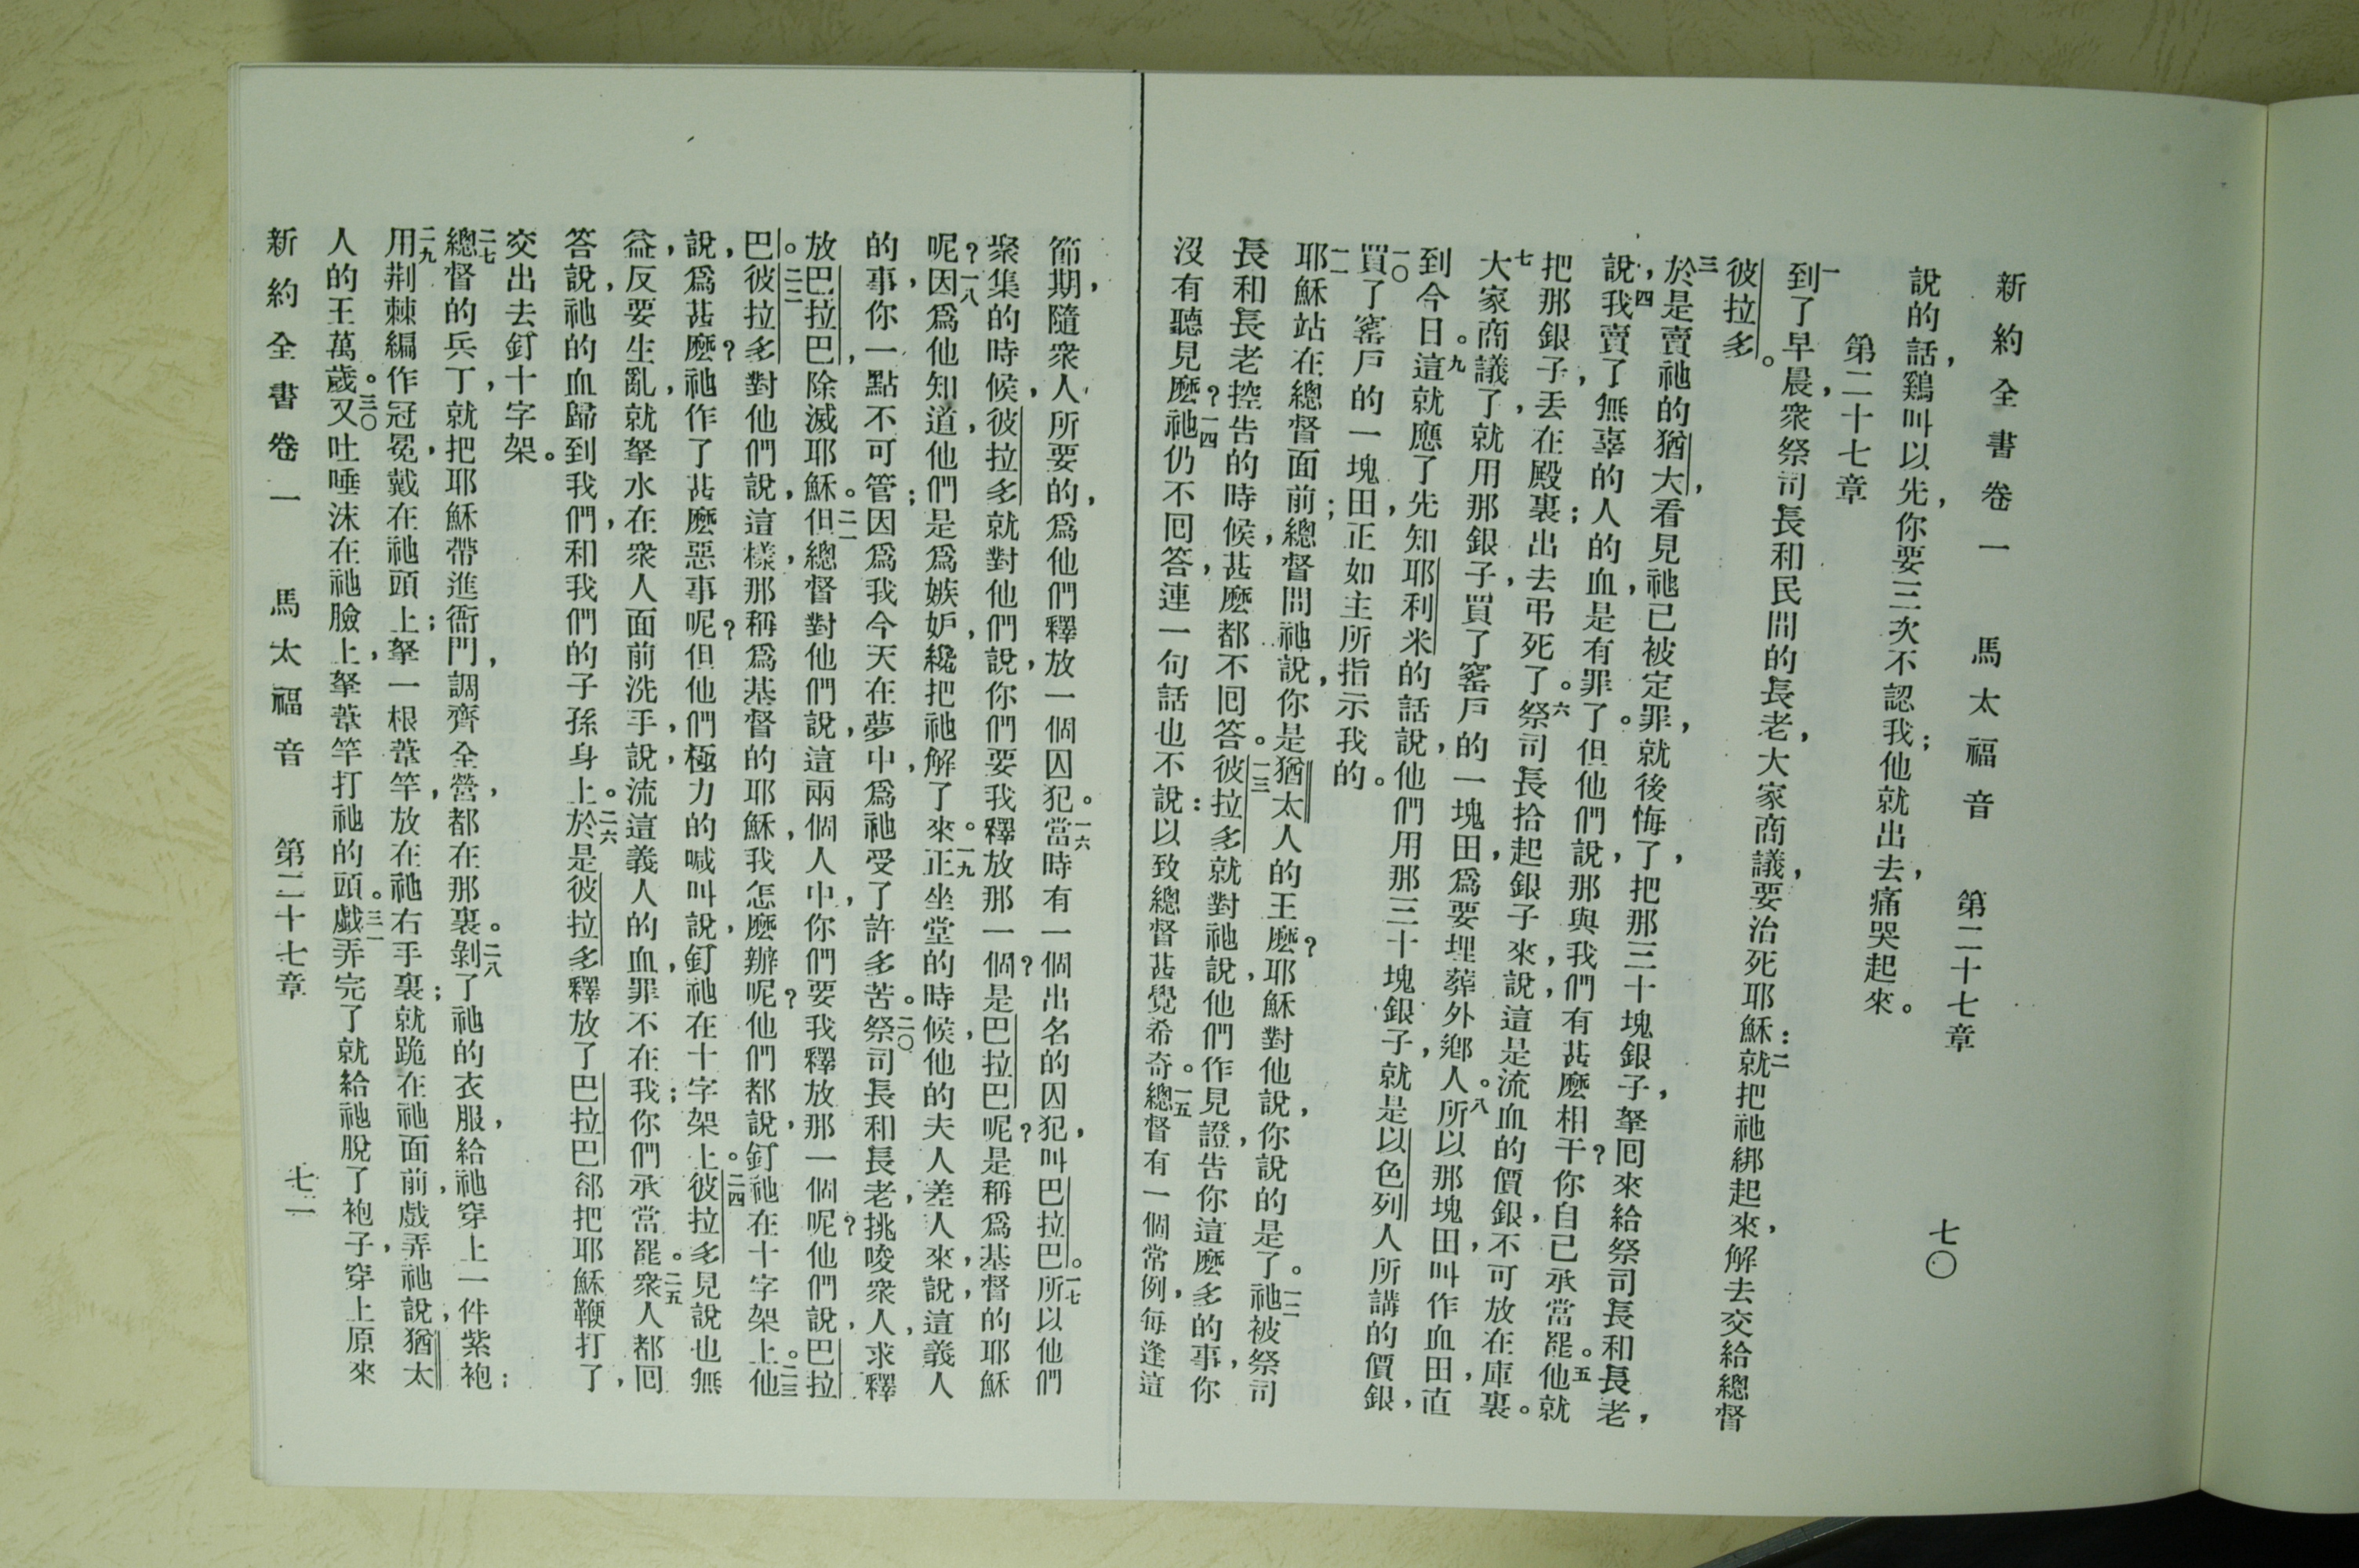 新約全書卷一 馬太福音 第二十七章 七〇
說的話，鷄叫以先，你要三次不認我；他就出去，痛哭起來。
第二十七章
一到了早晨，衆祭司長和民間的長老，大家商議，要治死耶穌：二就把祂綁起來，解去交給總督
彼拉多。
三於是賣祂的猶大，看見祂已被定罪，就後悔了，把那三十塊銀子，拏囘來給祭司長和長老，
說，四我賣了無辜的人的血，是有罪了。但他們說，那與我們有甚麽相干？你自己承當罷。五他就
把那銀子，丟在殿裏；出去弔死了。六祭司長拾起銀子來，說，這是流血的價銀，不可放在庫裏。
七大家商議了，就用那銀子，買了窰戶的一塊田，爲要埋葬外鄕人。八所以那塊田，叫作血田，直
到今日。九這就應了先知耶利米的話，說他們用那三十塊銀子，就是以色列人所講的價銀，
一〇買了窰戶的一塊田，正如主所指示我的。
一一耶穌站在總督面前；總督問祂說，你是猶太人的王麽？耶穌對他說，你說的是了。一二祂被祭司
長和長老控告的時候，甚麽都不囘答。一三彼拉多就對祂說，他們作見證，告你這麽多的事，你
沒有聽見麽？一四祂仍不囘答，連一句話也不說：以致總督甚覺希奇。一五總督有一個常例，每逢這
節期，隨衆人所要的，爲他們釋放一個囚犯。一六當時有一個出名的囚犯，叫巴拉巴。一七所以他們
聚集的時候，彼拉多就對他們說，你們要我釋放那一個？是巴拉巴呢？是稱爲基督的耶穌
呢？一八因爲他知道，他們是爲嫉妒，纔把祂解了來。一九正坐堂的時候，他的夫人差人來，說，這義人
的事，你一點不可管；因爲我今天在夢中，爲祂受了許多苦。二〇祭司長和長老，挑唆衆人，求釋
放巴拉巴，除滅耶穌。二一但總督對他們說，這兩個人中，你們要我釋放那一個呢？他們說，巴拉
巴。二二彼拉多對他們說，這樣，那稱爲基督的耶穌，我怎麽辦呢？他們都說，釘祂在十字架上。二三他
說，爲甚麽？祂作了甚麽惡事呢？但他們極力的喊叫說，釘祂在十字架上。二四彼拉多見說也無
益，反要生亂，就拏水在衆人面前洗手，說，流這義人的血，罪不在我；你們承當罷。二五衆人都囘
答說，祂的血歸到我們，和我們的子孫身上。二六於是彼拉多釋放了巴拉巴，郤把耶穌鞭打了，
交出去釘十字架。
二七總督的兵丁，就把耶穌帶進衙門，調齊全營，都在那裏。二八剝了祂的衣服，給祂穿上一件紫袍；
二九用荆棘編作冠冕，戴在祂頭上；拏一根葦竿，放在祂右手裏；就跪在祂面前，戲弄祂說，猶太
人的王萬歲。三〇又吐唾沫在祂臉上，拏葦竿打祂的頭。三一戲弄完了，就給祂脫了袍子，穿上原來
新約全書卷一 馬太福音 第二十七章 七一